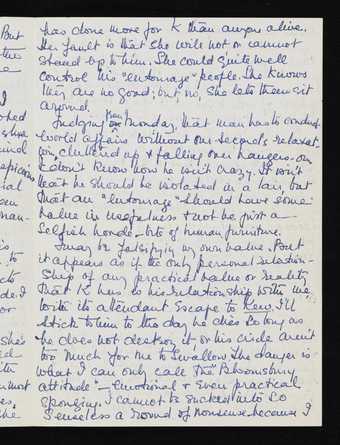 But
has done more for K than anyone alive.
Her fault is that she will not or cannot
stand up to him. She could quite well
control his "entourage" people. She knows
they are no good; but, no, she lets them sit
around.
Judging from Monday, that man has to conduct
world affairs without one second's relaxat-
ion, cluttered up & falling over hangers-on
I don't know how he isn't crazy. It isn't
that he should be isolated in a lair, but
that an "entourage" should have some
value in usefulness & not be just a
selfish horde - bits of human furniture.
I may be falsifying my own value. But
it appears as if the only personal relation-
ship of any practical value or reality
that K has is his relationship with me
with its attendant escape to Kew. I'll
stick to him to the day he dies so long as
he does not destroy it or his circle aren't
too much for me to swallow. The danger is
what I can only call the Bloomsbury
attitude" - emotional & even practical
sponging. I cannot be sucked into so
senseless a round of nonsense because I